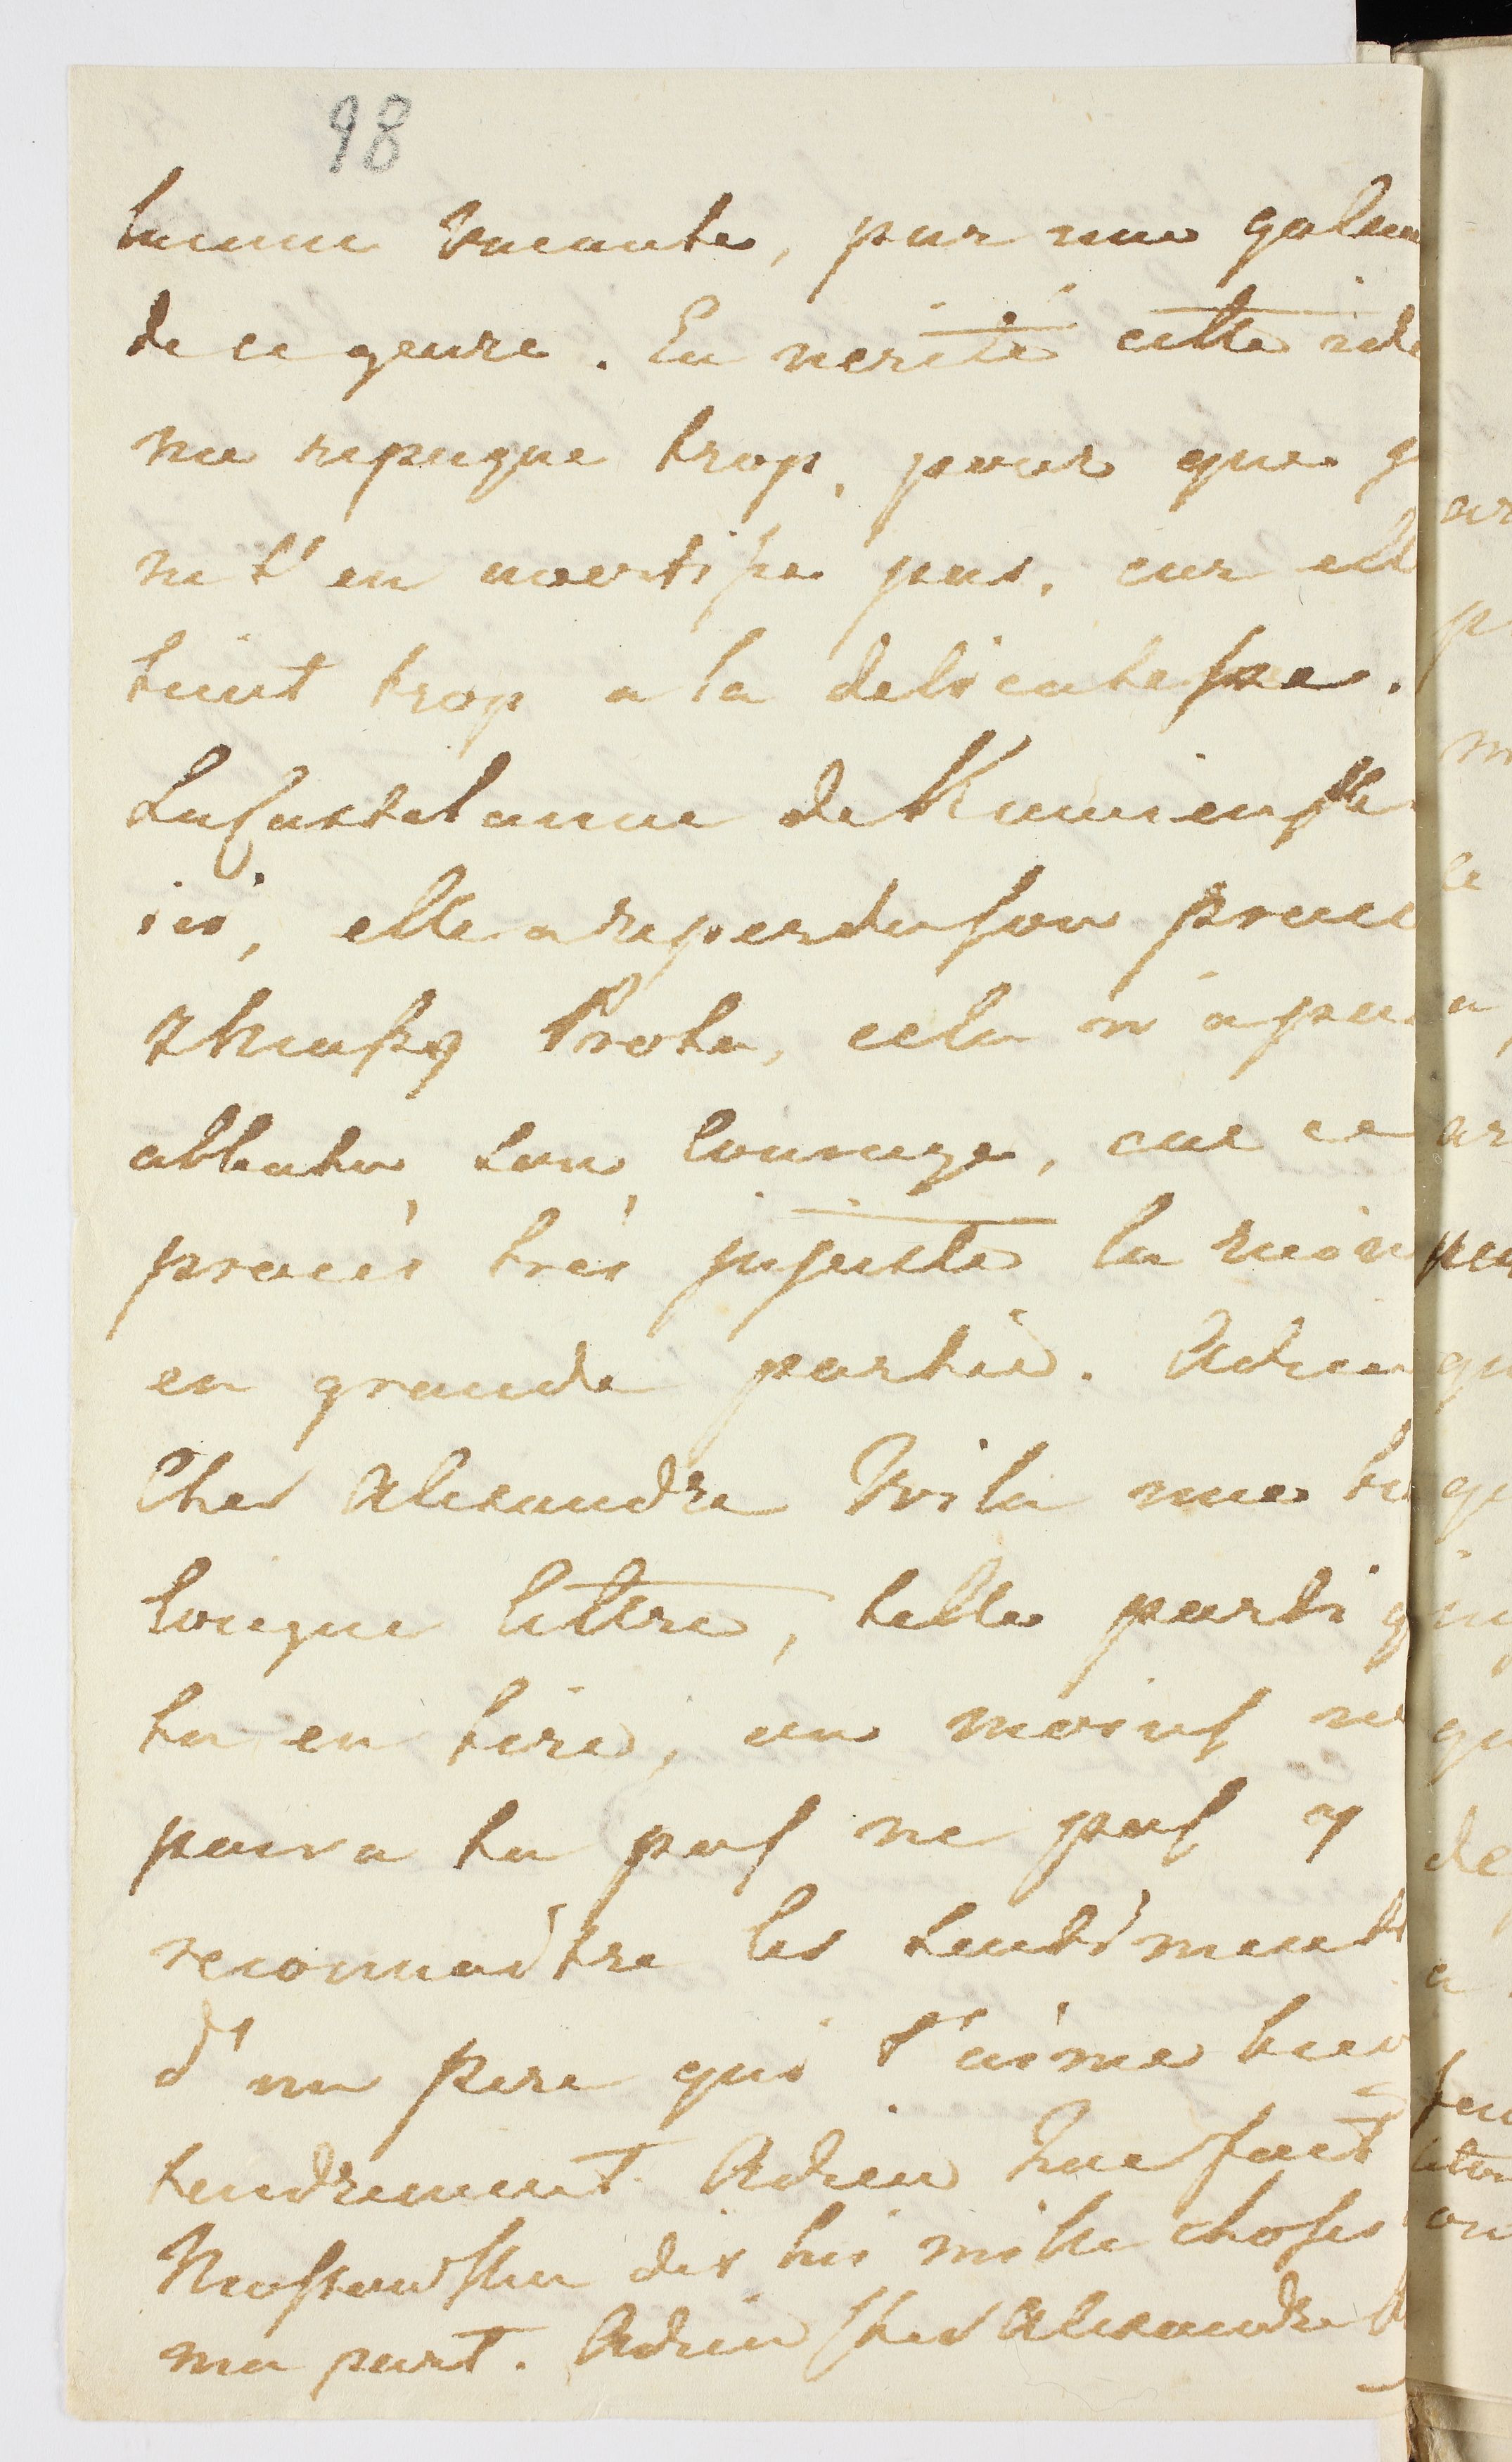 98
vacante, par une galan
de ce genre. En verité cette ide
me repugne trop, pour que j
ne t'en avertisse pas, car elle
tient trop a la delicatesse.
La Castelanne de Kaminsk
ici, elle a reperdu son proce
cela n'a pas
abbatu son courage, car ce
procés trés injuste la ruin
en grande partie. Adieu
Cher Alexandre Voila une
longue lettre, telle parti q
tu en tire, au moins ne
poura tu pas ne pas y
reconnaître les sentiment
d'un pere qui t'aime bien
tendrement. Adieu
dis lui mille choses
ma part. Adieu Cher Alexandre